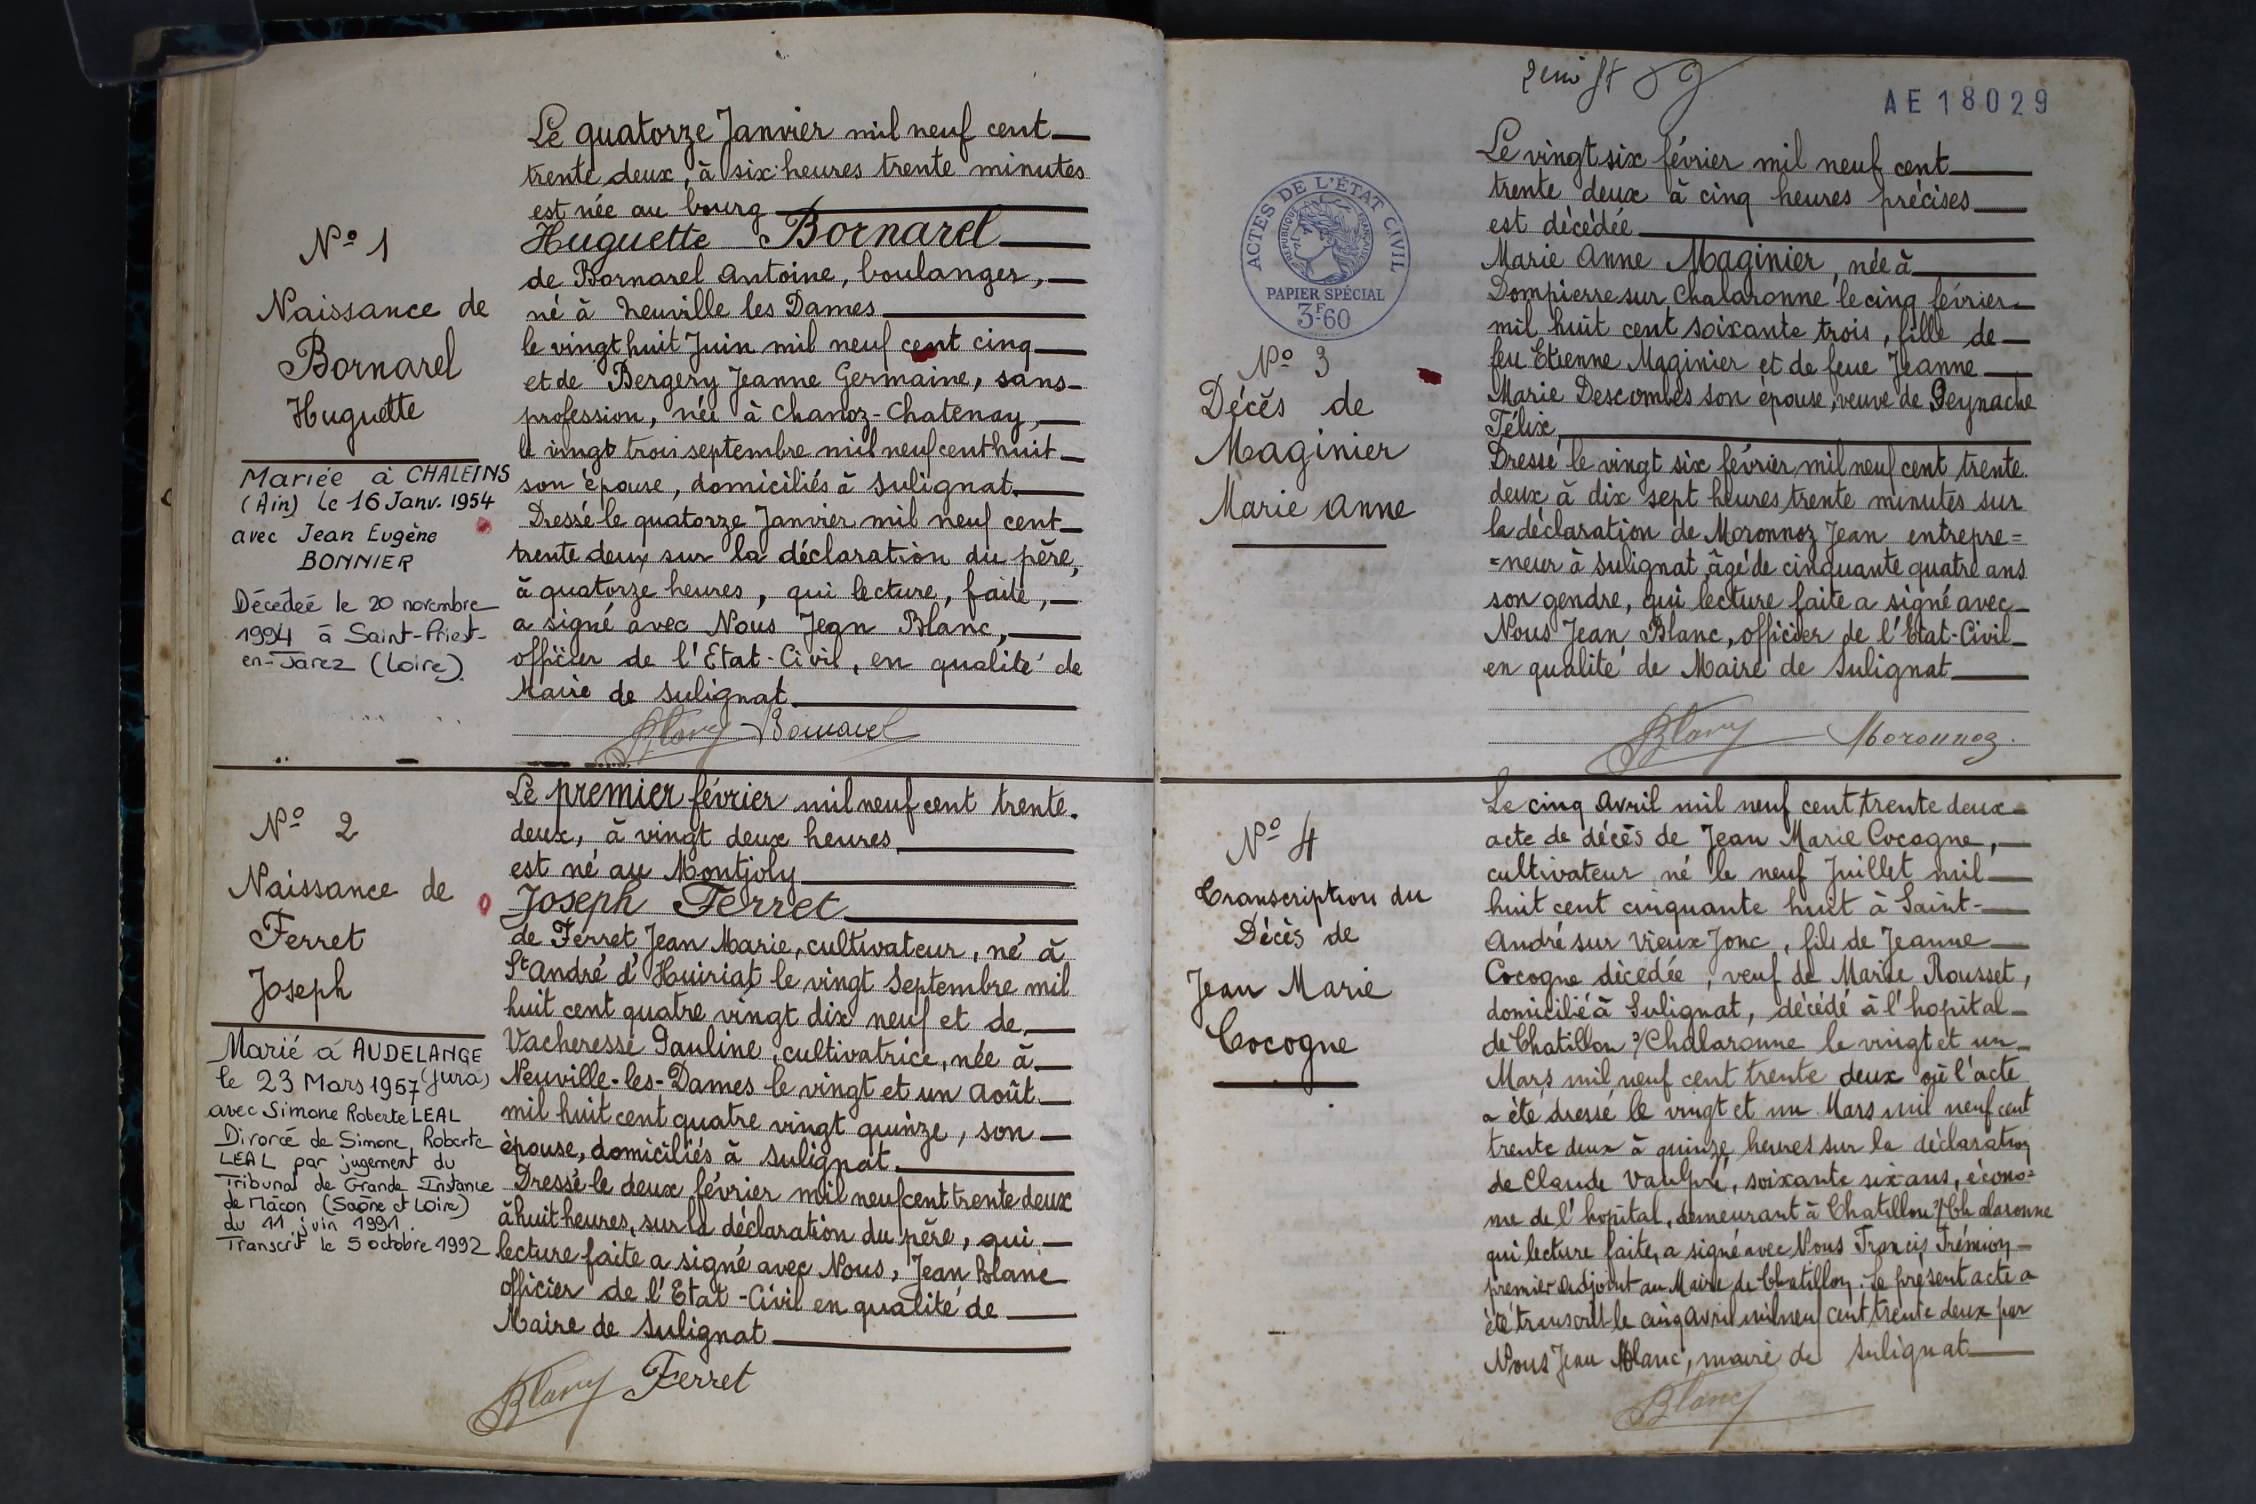 Nº 1
Naissance de
Bornarel
Huguette
Mariée à CHALEINS
(Ain) le 16 Janv. 1954
avec Jean Eugène
BONNIER
Décédée le 20 novembre
1994 à Saint-Priest-
en-Jarez (Loire).
Le quatorze Janvier mil neuf cent
trente deux, à six heures trente minutes
est née au bourg
Huguette Bornarel
de Bornarel Antoine, boulanger,
né à Neuville les Dames
le vingt huit Juin mil neuf cent cinq
et de Bergery Jeanne Germaine, sans
profession, née à Chanoz-Chatenay,
le vingt trois septembre mil neuf cent huit
son épouse, domiciliés à Sulignat.
Dressé le quatorze Janvier mil neuf cent
trente deux sur la déclaration du père,
à quatorze heures, qui lecture, faite,
a signé avec Nous Jean Blanc,
officier de l'Etat-Civil, en qualité de
Maire de Sulignat
Blanc Bornarel
Nº 2
Naissance de
Ferret
Joseph
Marié à AUDELANGE
(Jura)
le 23 Mars 1957
avec Simone Roberte LEAL
Divorcé de Simone, Roberte
LEAL par jugement du
Tribunal de Grande Instance
de Mâcon (Saône et Loire)
du 11 juin 1991.
Transcrit le 5 octobre 1992
Le premier février mil neuf cent trente.
deux, à vingt deux heures
est né au Montjoly
Joseph Ferret
de Ferret Jean Marie, cultivateur, né à
St André d'Huiriat le vingt Septembre mil
huit cent quatre vingt dix neuf et de
Vacheresse Pauline, cultivatrice, née à
Neuville-les-Dames le vingt et un Août
mil huit cent quatre vingt quinze, son
épouse, domiciliés à Sulignat.
Dressé le deux février mil neuf cent trente deux
à huit heures, sur la déclaration du père, qui
lecture faite a signé avec Nous, Jean Blanc
officier de l'Etat-Civil en qualité de
Maire de Sulignat
Blanc Ferret
AE18029
ACTES DE L'ÉTAT CIVIL
RÉPUBLIQUE FRANÇAISE
PAPIER SPÉCIAL
3F.60
Nº 3
Décès de
Maginier
Marie Anne
Le vingt six février mil neuf cent
trente deux à cinq heures précises
est décédée
Marie Anne Maginier, née à
Dompierre sur Chalaronne le cinq février
mil huit cent soixante trois, fille de
feu Etienne Maginier et de feue Jeanne
Marie Descombes son épouse, veuve de Peynache
Félix,
Dressé le vingt six février mil neuf cent trente
deux à dix sept heures trente minutes sur
la déclaration de Moronnoz Jean entrepre=
=neur à Sulignat âgé de cinquante quatre ans
son gendre, qui lecture faite a signé avec
Nous Jean Blanc, officier de l'Etat-Civil
en qualité de Maire de Sulignat
Blanc Moronnoz.
Nº 4
Transcription du
Décès de
Jean Marie
Cocogne
Le cinq Avril mil neuf cent trente deux
acte de décès de Jean Marie Cocogne,
cultivateur né le neuf Juillet mil
huit cent cinquante huit à Saint-
André sur Vieux Jonc, fils de Jeanne
Cocogne décédée, veuf de Marie Rousset,
domicilié à Sulignat, décédé à l'hopital
de Chatillon s/Chalaronne le vingt et un
Mars mil neuf cent trente deux où l'acte
a été dressé le vingt et un Mars mil neuf cent
trente deux à quinze heures sur la déclaration
de Claude Vaulpré, soixante six ans, écono=
me de l'hopital, demeurant à Chatillon s/Chalaronne
qui lecture faite, a signé avec Nous Francis Frémion
premier adjoint au Maire de Chatillon. Le présent acte a
été transcrit le cinq Avril mil neuf cent trente deux par
Nous Jean Blanc, maire de Sulignat
Blanc